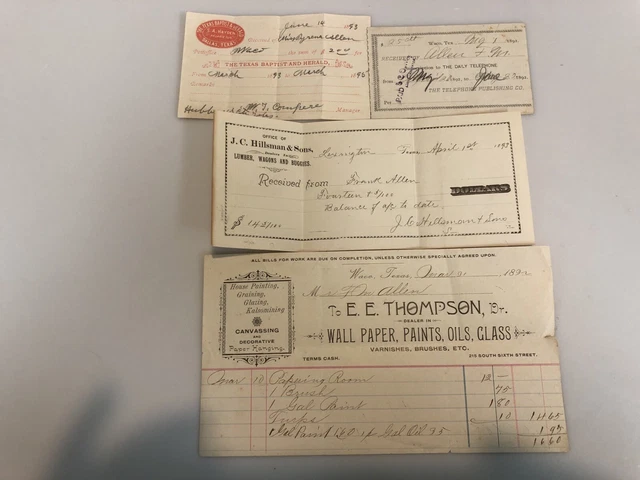 THE TEXAS BAPTIST HERALD,
S. A. HAYDEN
DALLAS, TEXAS
June 14 1893
Allen
Waco
the sum of $2.00
THE TEXAS BAPTIST AND HERALD,
From March 1893 to March 1895
M. T. Compere
Manager.
Waco, Tex.
RECEIVED OF Allen
to THE DAILY TELEPHONE
THE TELEPHONE PUBLISHING CO.
Per
PAID
OFFICE OF
J. C. Hillsman & Sons,
LUMBER, WAGONS AND BUGGIES.
Lexington Texas, April 1st 189
Received from Frank Allen
Fourteen & /100 DOLLARS
Balance of a/c to date.
$ 14 /100
J. C. Hillsman & Sons
ALL BILLS FOR WORK ARE DUE ON COMPLETION, UNLESS OTHERWISE SPECIALLY AGREED UPON.
House Painting,
Graining,
Glazing,
Kalsomining
CANVASSING
AND
DECORATIVE
Paper Hanging.
Waco, Texas, Mar 189
M Allen
To E. E. THOMPSON, Dr.
DEALER IN
WALL PAPER, PAINTS, OILS, GLASS
VARNISHES, BRUSHES, ETC.
TERMS CASH. 213 SOUTH SIXTH STREET.
Mar 10 Papering Room 12 —
1 Brush 75
1 Gal Paint 1 80
Tacks 10 14 65
Gal Paint 1.60 Gal Oil 35 1 95
16 60